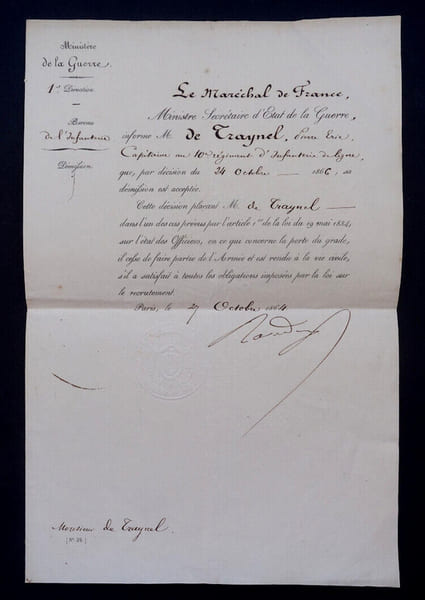 Ministère
de la Guerre.
1re Direction
Bureau
de l'Infanterie
Démission.
Le Maréchal de France,
Ministre Secrétaire d'État de la Guerre,
informe M. de Traynel,
Capitaine au 10e régiment d'Infanterie de ligne,
que, par décision du 24 Octobre 1864, sa
démission est acceptée.
Cette décision plaçant M. de Traynel
dans l'un des cas prévus par l'article 1er de la loi du 19 mai 1834,
sur l'état des Officiers, en ce qui concerne la perte du grade,
il cesse de faire partie de l'Armée et est rendu à la vie civile,
s'il a satisfait à toutes les obligations imposées par la loi sur
le recrutement.
Paris, le 27 Octobre 1864
Monsieur de Traynel.
[N° 28]